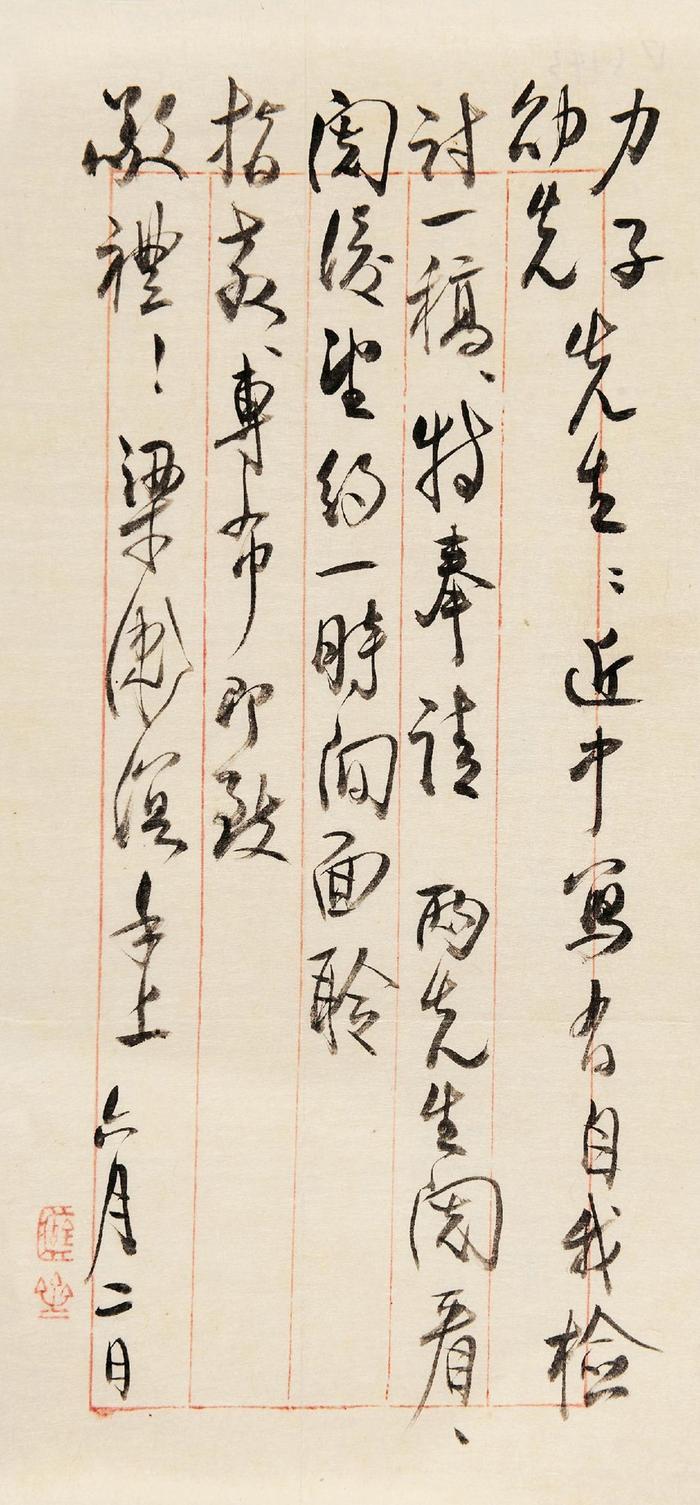 力子
劭先
先生：近中寫有自我檢
討一稿、特奉請 兩先生閱看、
閱後望約一時間面聆
指教、專布即致
敬禮！梁漱溟手上 六月二日